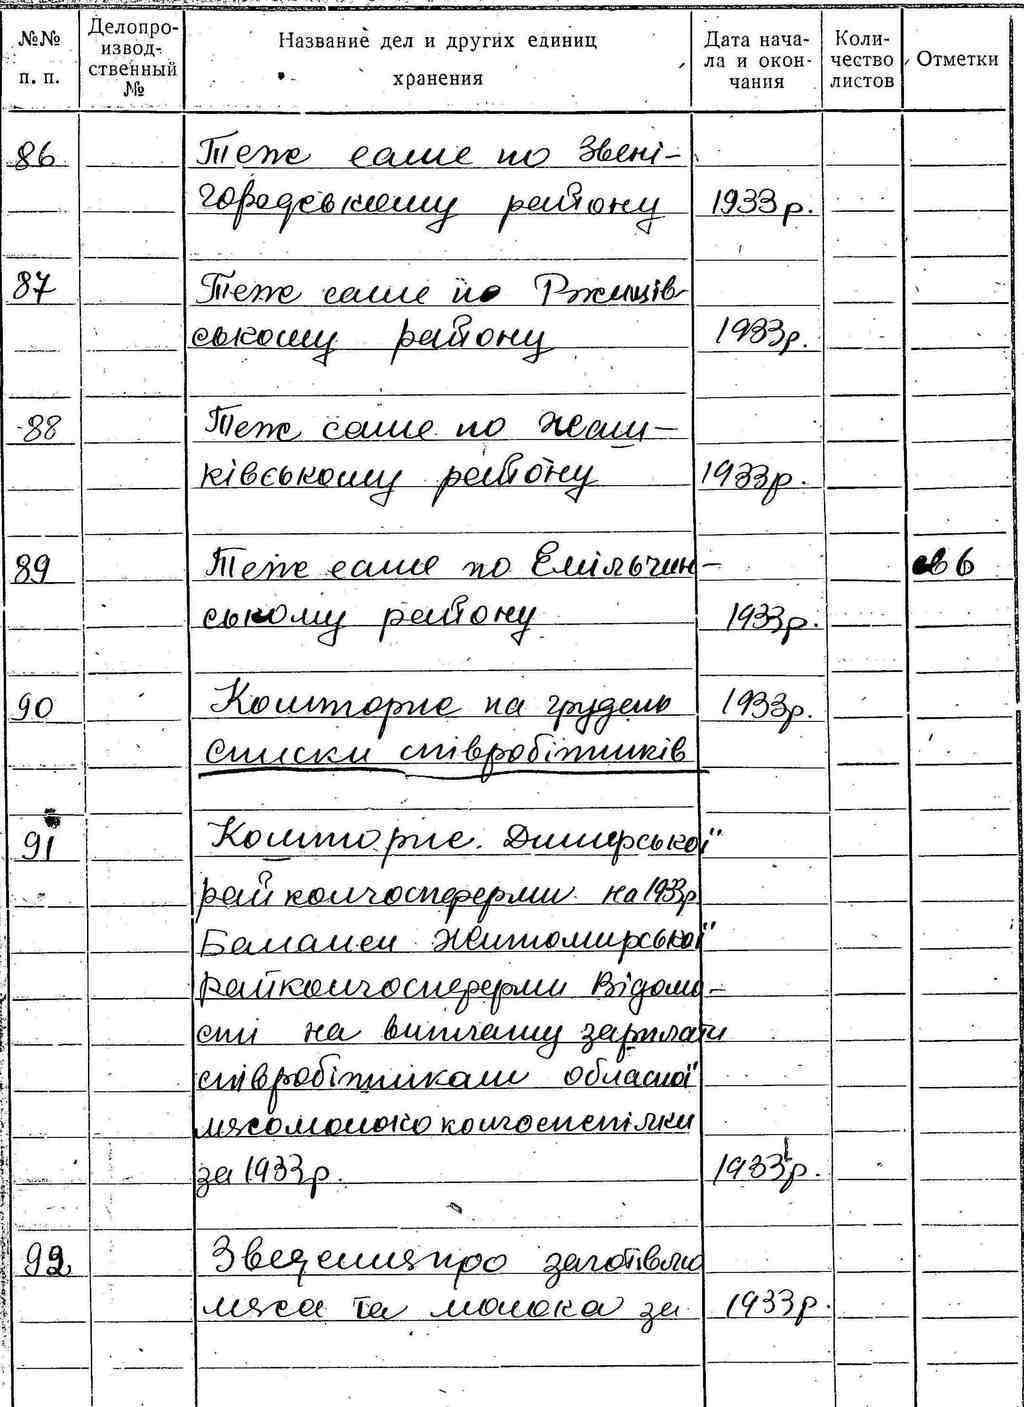 №№ п. п. Делопроизводственный № Название дел и других единиц хранения Дата начала и окончания Количество листов Отметки
86 Теж саме по Звені-
городському району 1933р.
87 Теж саме по Ржищів-
ському району 1933р.
88 Теж саме по Жаш-
ківському району 1933р.
89 Теж саме по Ємільчин-
ському району 1933р.
90 Кошторис на грудень 1933р.
списки співробітників
91 Кошторис Димерської
райколгоспферми на 1933р
Баланси Житомирської
Райколгоспферми Відомо-
сті на виплату зарплати
співробітникам обласної
мясомолоко колгоспспілки
за 1933р. 1933р.
92 Зведення про заготівлю
мяса та молока за 1933р.